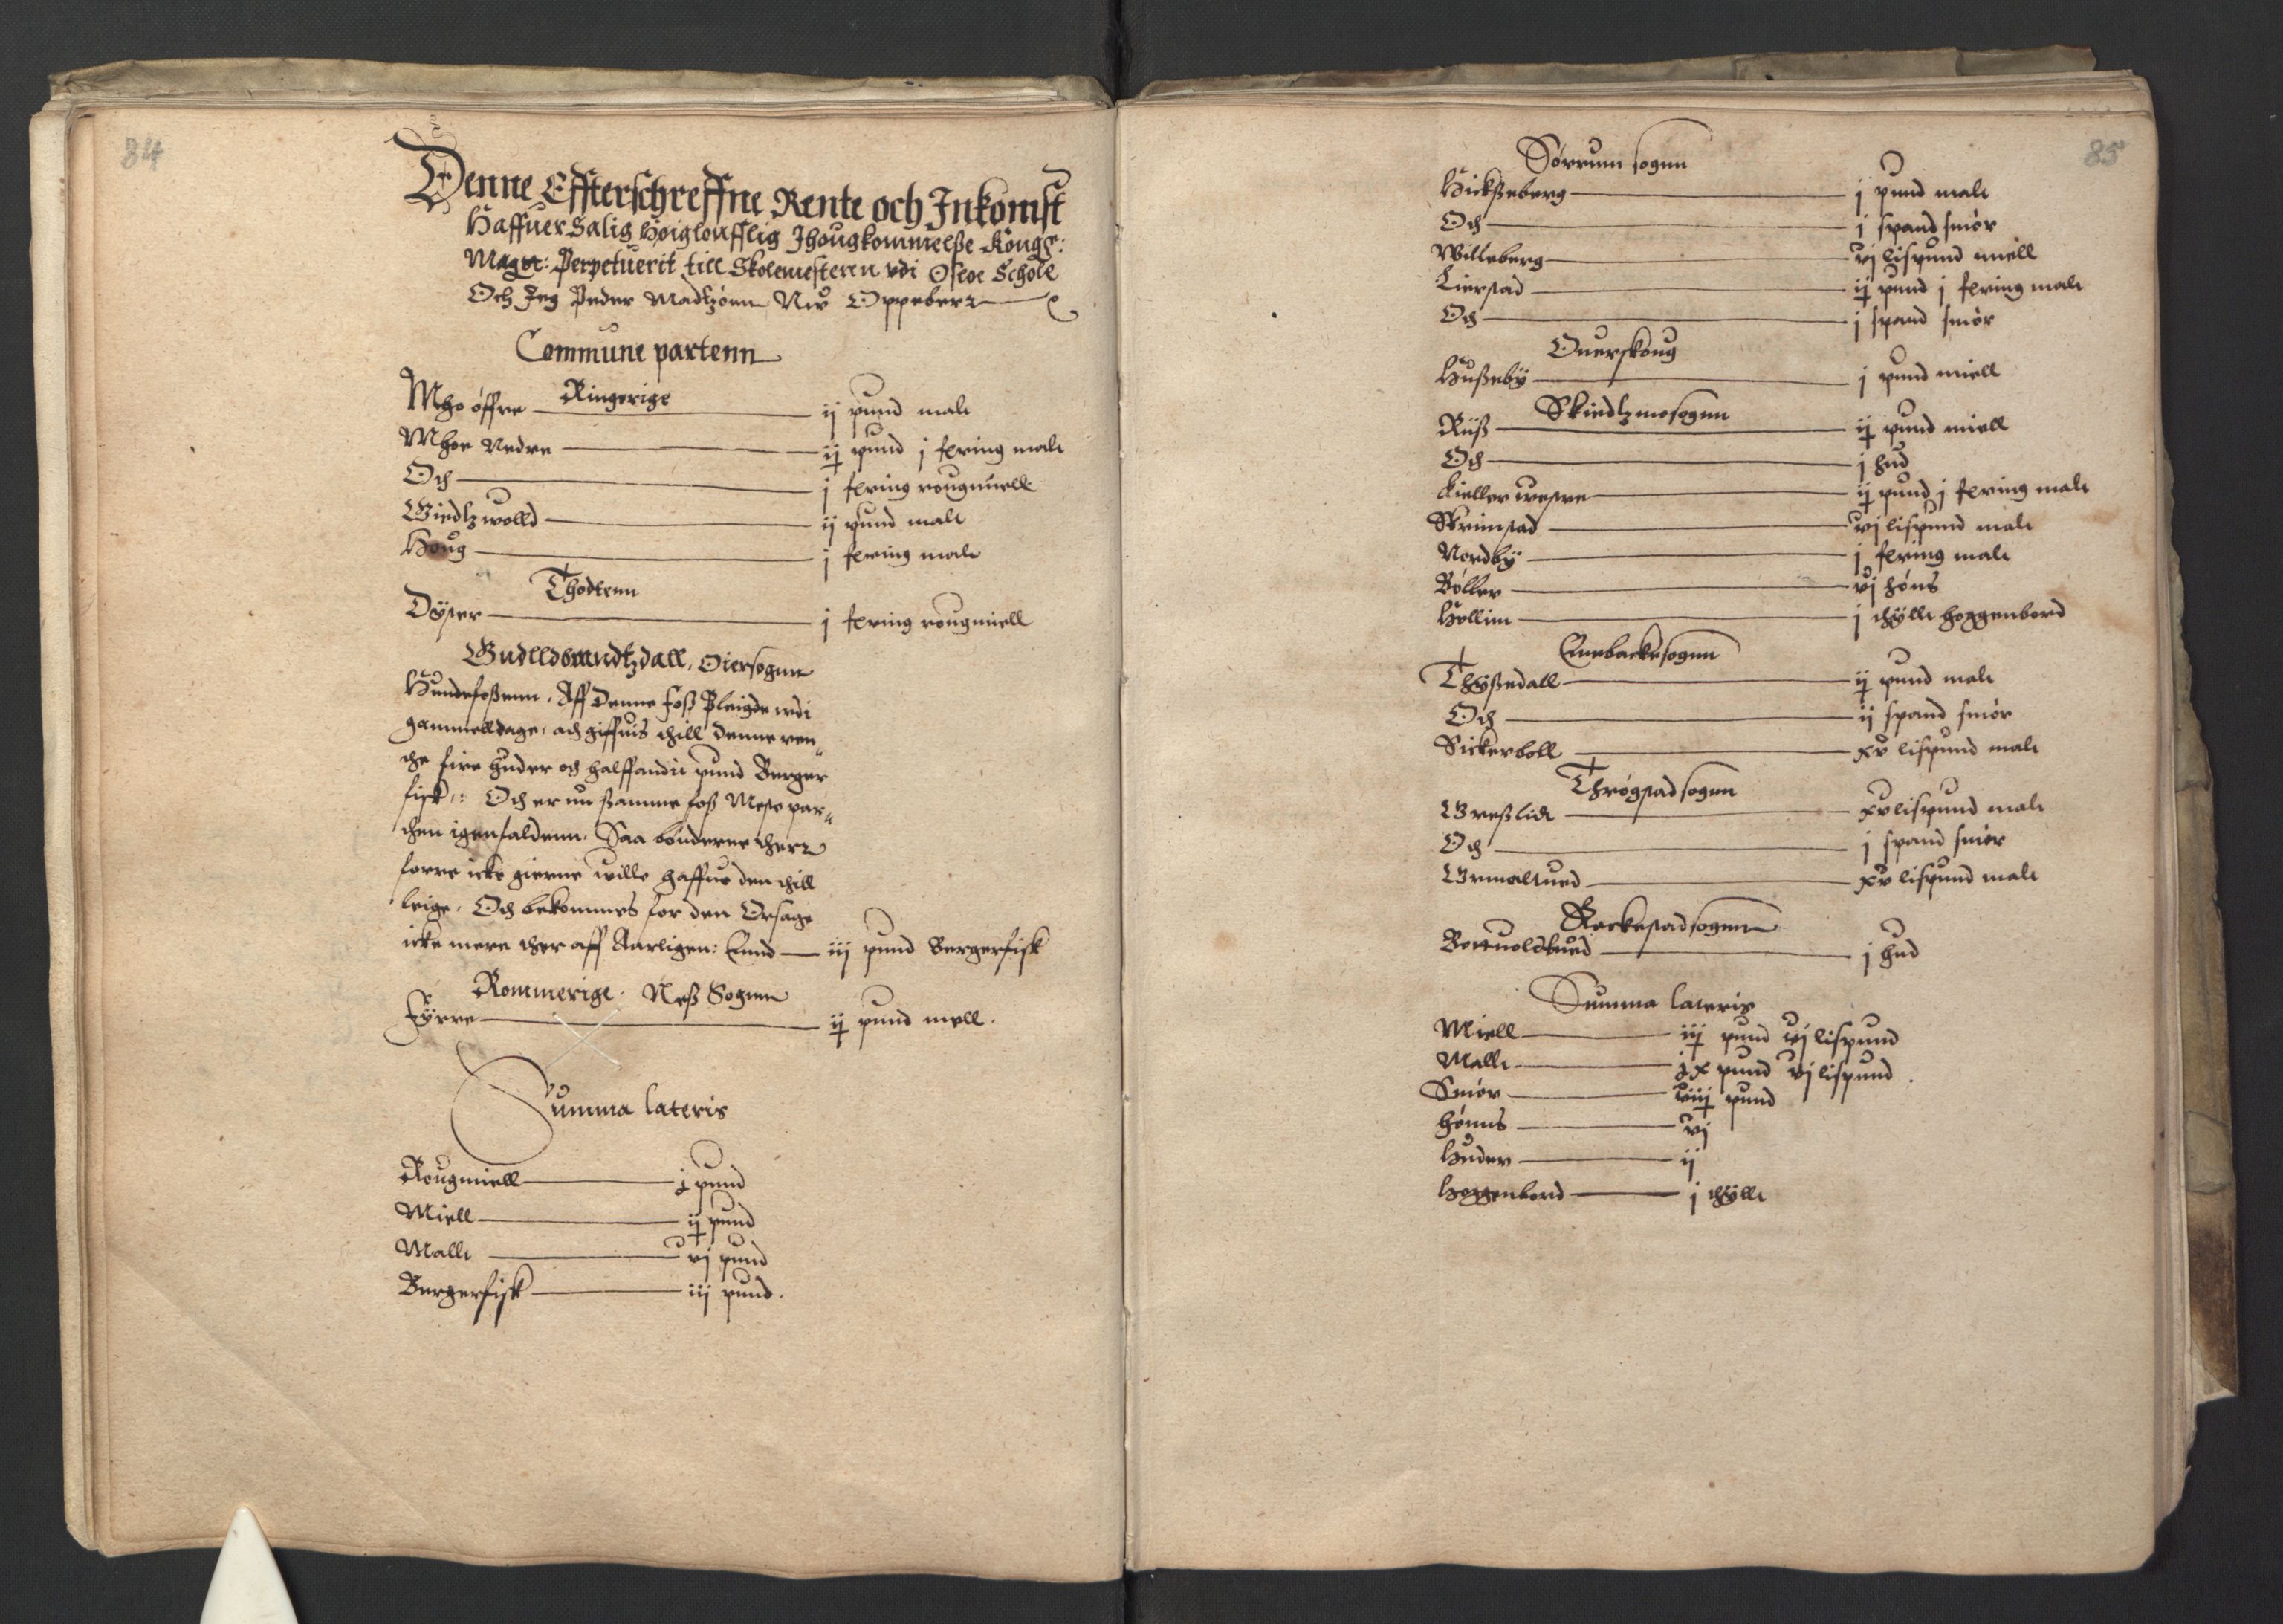 84
Denne Effterschreffne Rente och Inkomst
Haffuer Salig Høigloufflig Ihougkommelße Kongg:
Magtt: Perpetuerit till Skolemesteren vdi Osloe Schole
Och Jeg Peder Madtzönn Nu Oppeberr
Commune partenn
Ringerige
Mho öffre ij pund malt
Mhoe Nedre ij pund j fering malt
Och j fering rougmiell
Giedtzwolld ij pund malt
Houg j fering malt
Thodtenn
Dÿster j fering rougmiell
Gudlldbrandtzdall, Oiersognn
Hundefoßenn, Aff Denne foß Pleigde udi
gammelldage, att giffuis thill denne ren„
the fire huder och halffandit pund Berger
fisk, Och er nu ßamme foß Meste par„
then igenfaldenn, Saa bønderne therr
forre icke gierne wille haffue den thill
leige, Och bekommes for den Orsage
icke mere ther aff Aarligen: Ennd iij pund Bergerfisk
Rommerige. Neß Sognn
Fÿrre ij pund mell.
Summa lateris
Rougmiell j pund
Miell ij pund
Mallt vj pund
Bergerfisk iij pund.
85
Sørrum sognn
Hickßeberg j pund malt
Och j spand smør
Willeberg vj lispund miell
Lierstad ij pund j fering malt
Och j spand smør
Ouerskoug
Hußebÿ j pund miell
Skiedtzmosognn
Riiß ij pund miell
Och j hud
Kieller westre ij pund j fering malt
Skrimstad vj lispund malt
Nordbÿ j fering malt
Bøller vj høns
Hellim j thÿllt hoggenbord
Ennebackesognn
Thÿßedall ij pund malt
Och ij spand smør
Sickerboll xv lispund malt
Thrøgstad sognn
Greßlid xv lispund malt
Och j spand smør
Grimaltued xv lispund malt
Rackestad sognn
Bottuoldtued j hud
Summa lateris
Miell iij pund vj lispund
Mallt ix pund vj lispund.
Smør viij pund
høns vj
Huder ij
Hoggenbord j thÿllt